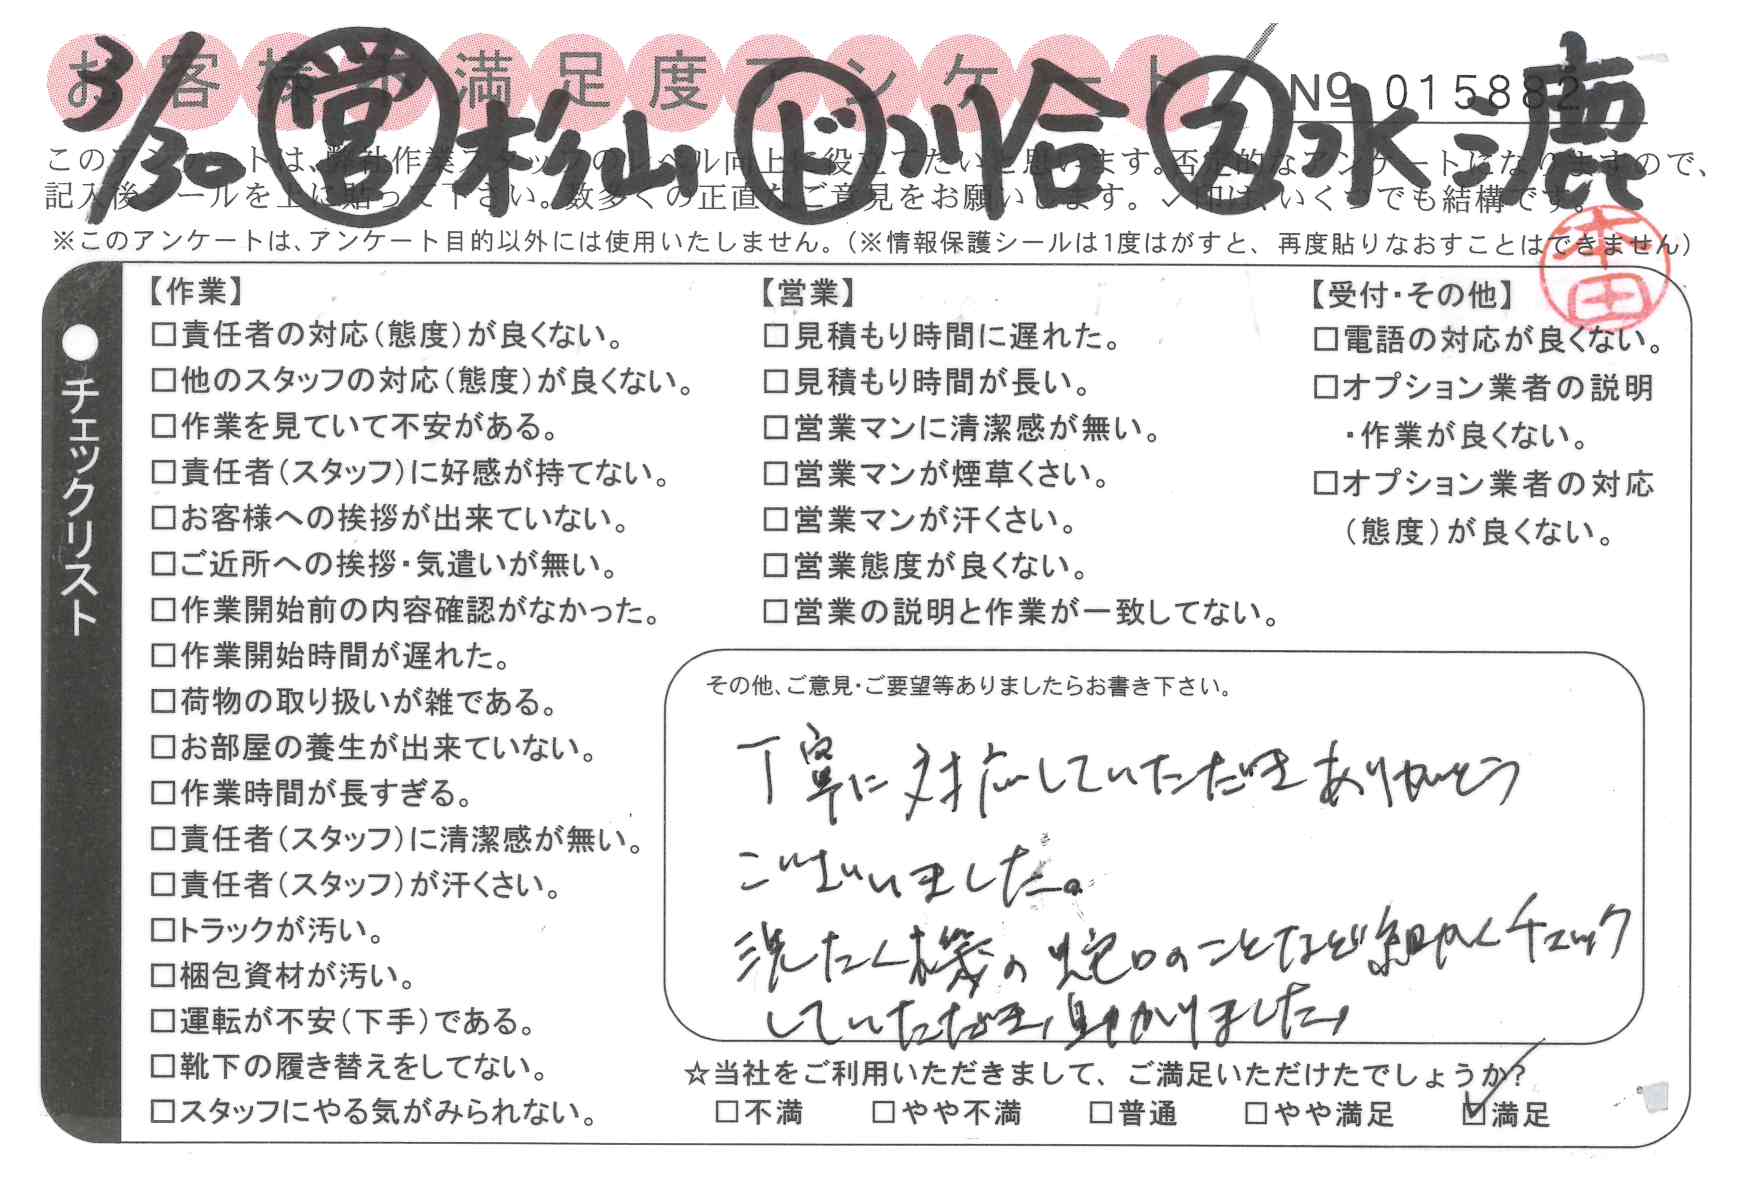 お客様不満足度アンケート
№ 015882
3/30 営 杉山 ド 川合 ス 水 漉
このアンケートは、弊社作業スタッフのレベル向上に役立てたいと思います。否定的なアンケートになりますので、
記入後シールを上に貼って下さい。数多くの正直なご意見をお願いします。✓印は、いくつでも結構です。
※このアンケートは、アンケート目的以外には使用いたしません。（※情報保護シールは1度はがすと、再度貼りなおすことはできません）
本田
●チェックリスト
【作業】
□責任者の対応（態度）が良くない。
□他のスタッフの対応（態度）が良くない。
□作業を見ていて不安がある。
□責任者（スタッフ）に好感が持てない。
□お客様への挨拶が出来ていない。
□ご近所への挨拶・気遣いが無い。
□作業開始前の内容確認がなかった。
□作業開始時間が遅れた。
□荷物の取り扱いが雑である。
□お部屋の養生が出来ていない。
□作業時間が長すぎる。
□責任者（スタッフ）に清潔感が無い。
□責任者（スタッフ）が汗くさい。
□トラックが汚い。
□梱包資材が汚い。
□運転が不安（下手）である。
□靴下の履き替えをしてない。
□スタッフにやる気がみられない。
【営業】
□見積もり時間に遅れた。
□見積もり時間が長い。
□営業マンに清潔感が無い。
□営業マンが煙草くさい。
□営業マンが汗くさい。
□営業態度が良くない。
□営業の説明と作業が一致してない。
【受付・その他】
□電語の対応が良くない。
□オプション業者の説明
・作業が良くない。
□オプション業者の対応
（態度）が良くない。
その他、ご意見・ご要望等ありましたらお書き下さい。
丁寧に対応していただきありがとう
ございました。
洗たく機の蛇口のことなど細かくチェック
していただき、助かりました。
☆当社をご利用いただきまして、ご満足いただけたでしょうか？
□不満 □やや不満 □普通 □やや満足 ☑満足